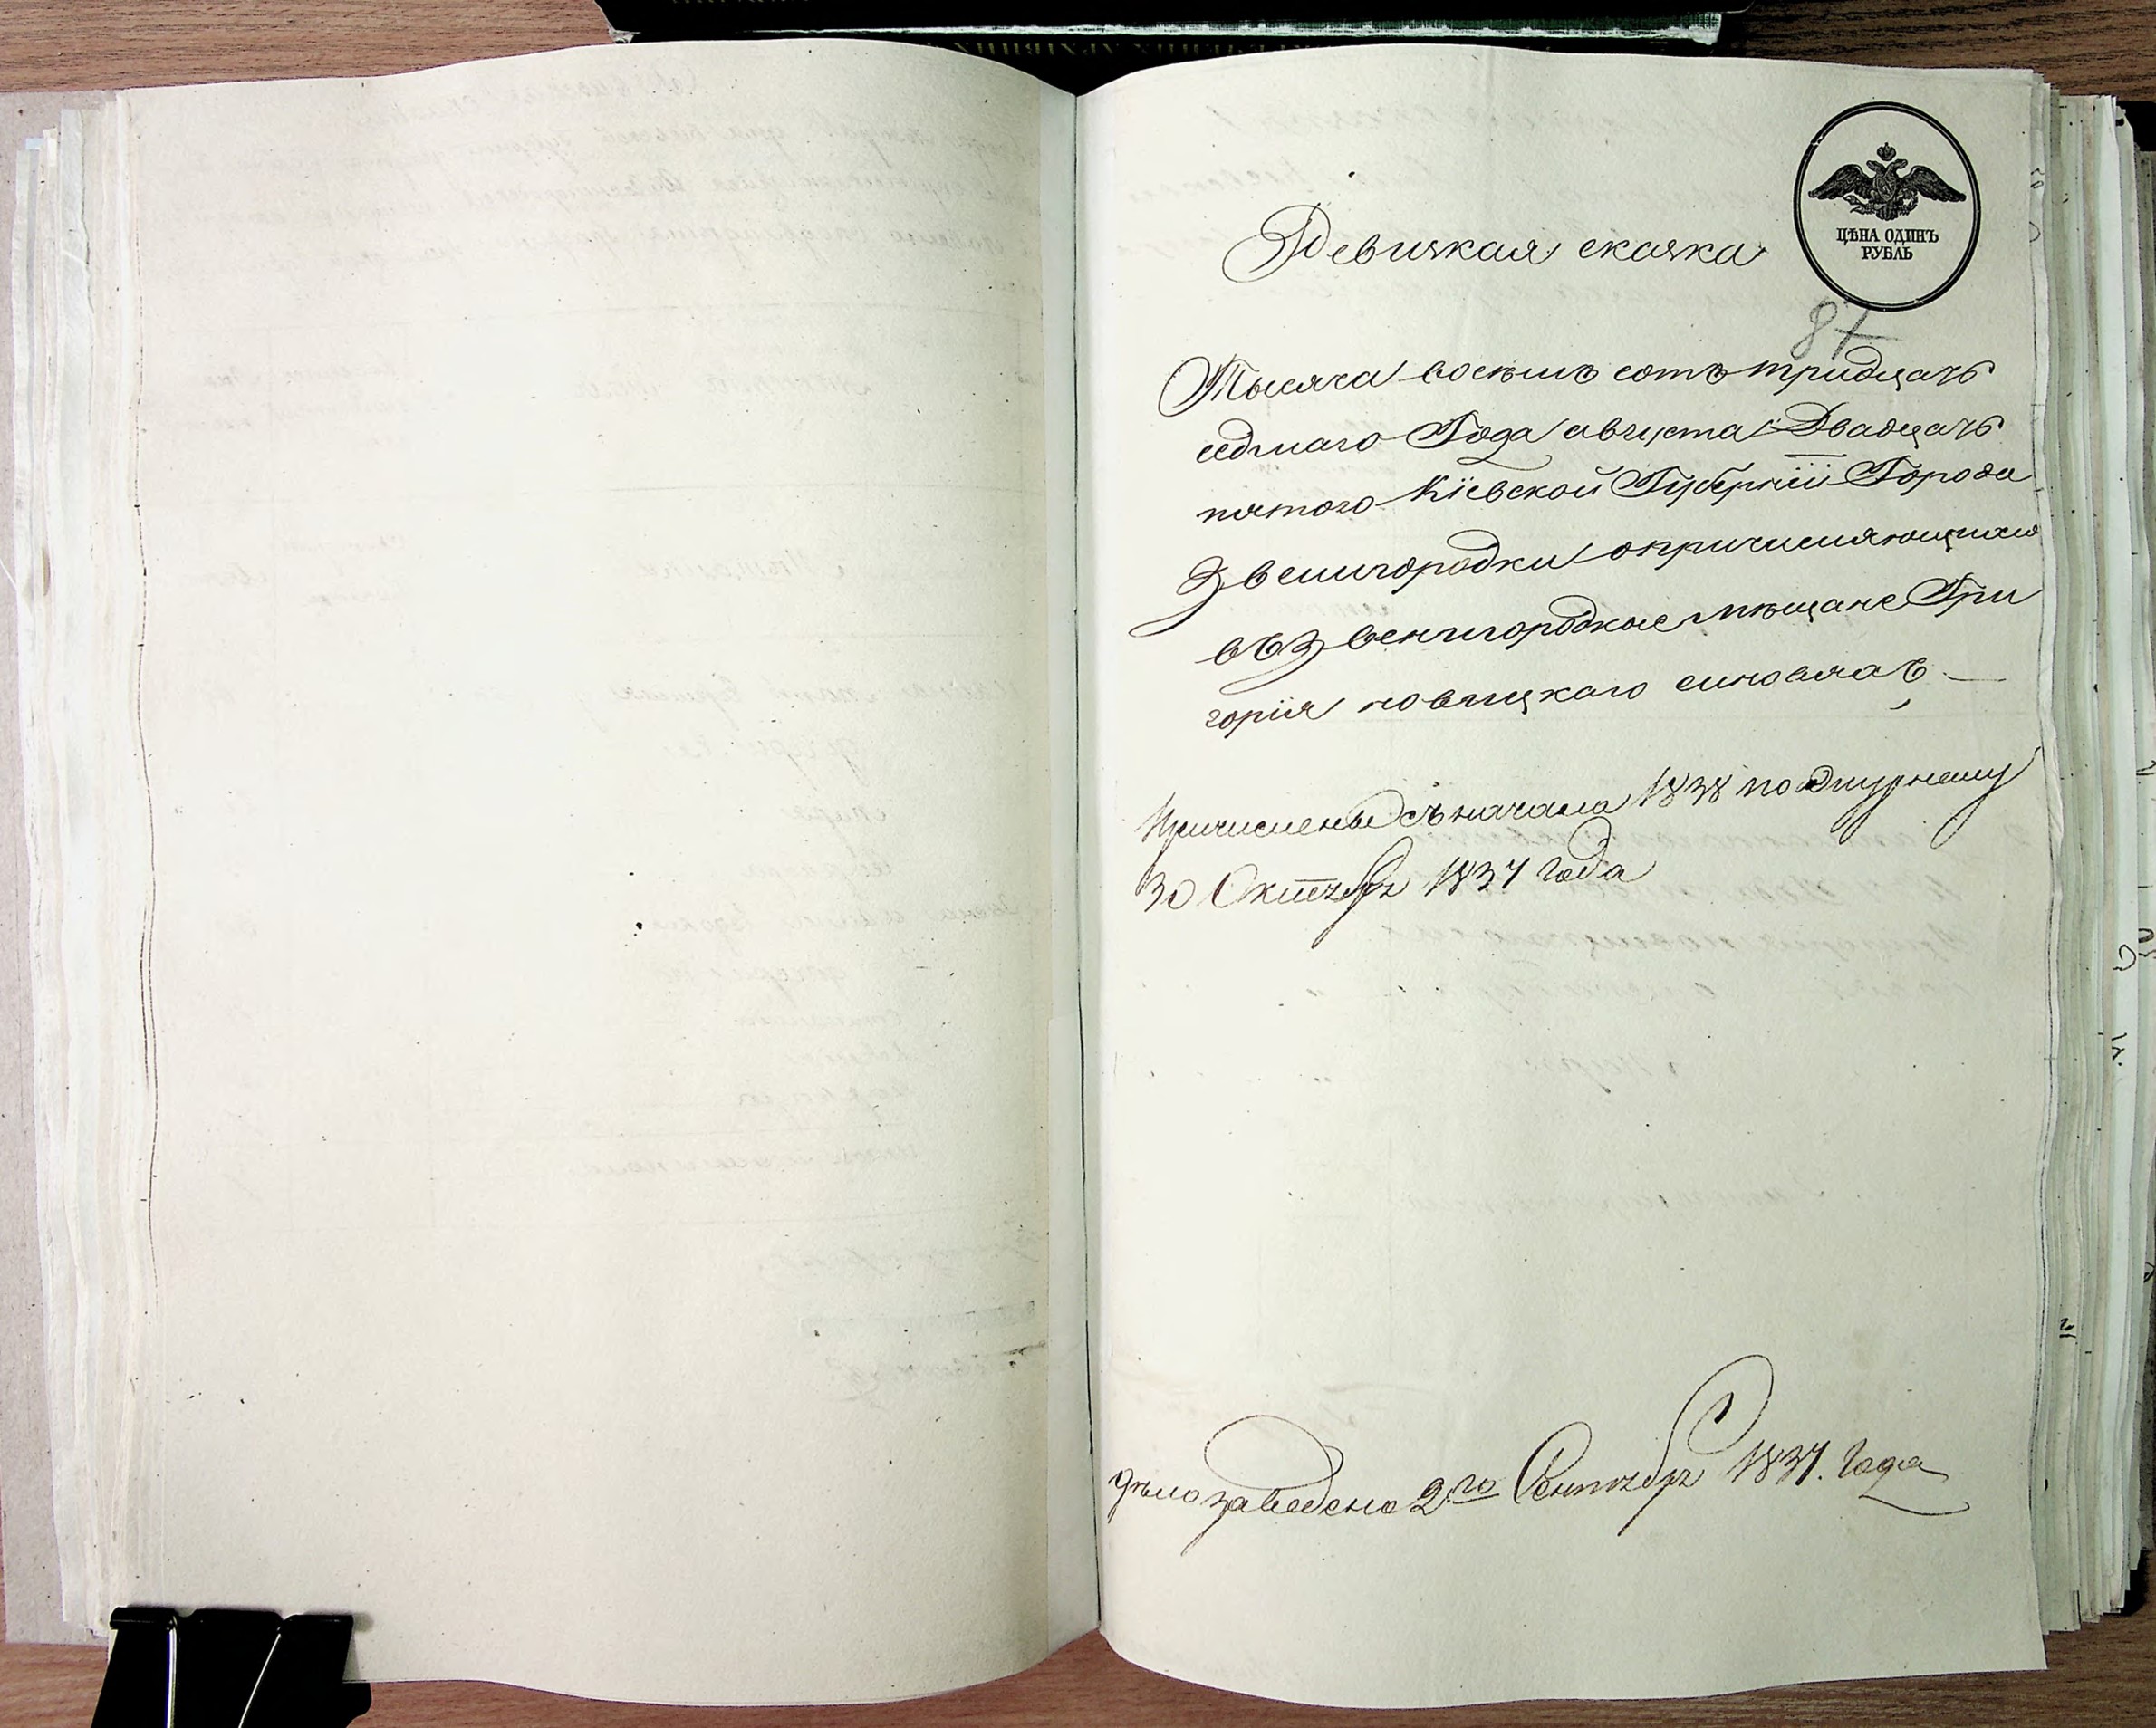 Ревизкая сказка
ЦѢНА ОДИНЪ
РУБЛЬ
87
Тысяча восемь сотъ тридцать
седмаго Года августа Двадцать
пятого Кіевской Губерніи Города
Звенигородки опричисляющихся
въ Звенигородкые мѣщане Гри
горія новицкаго синовяхъ
Причислены съ начала 1838 по журналу
30 Октября 1837 года
дѣло заведено 2го Сентября 1837. Года